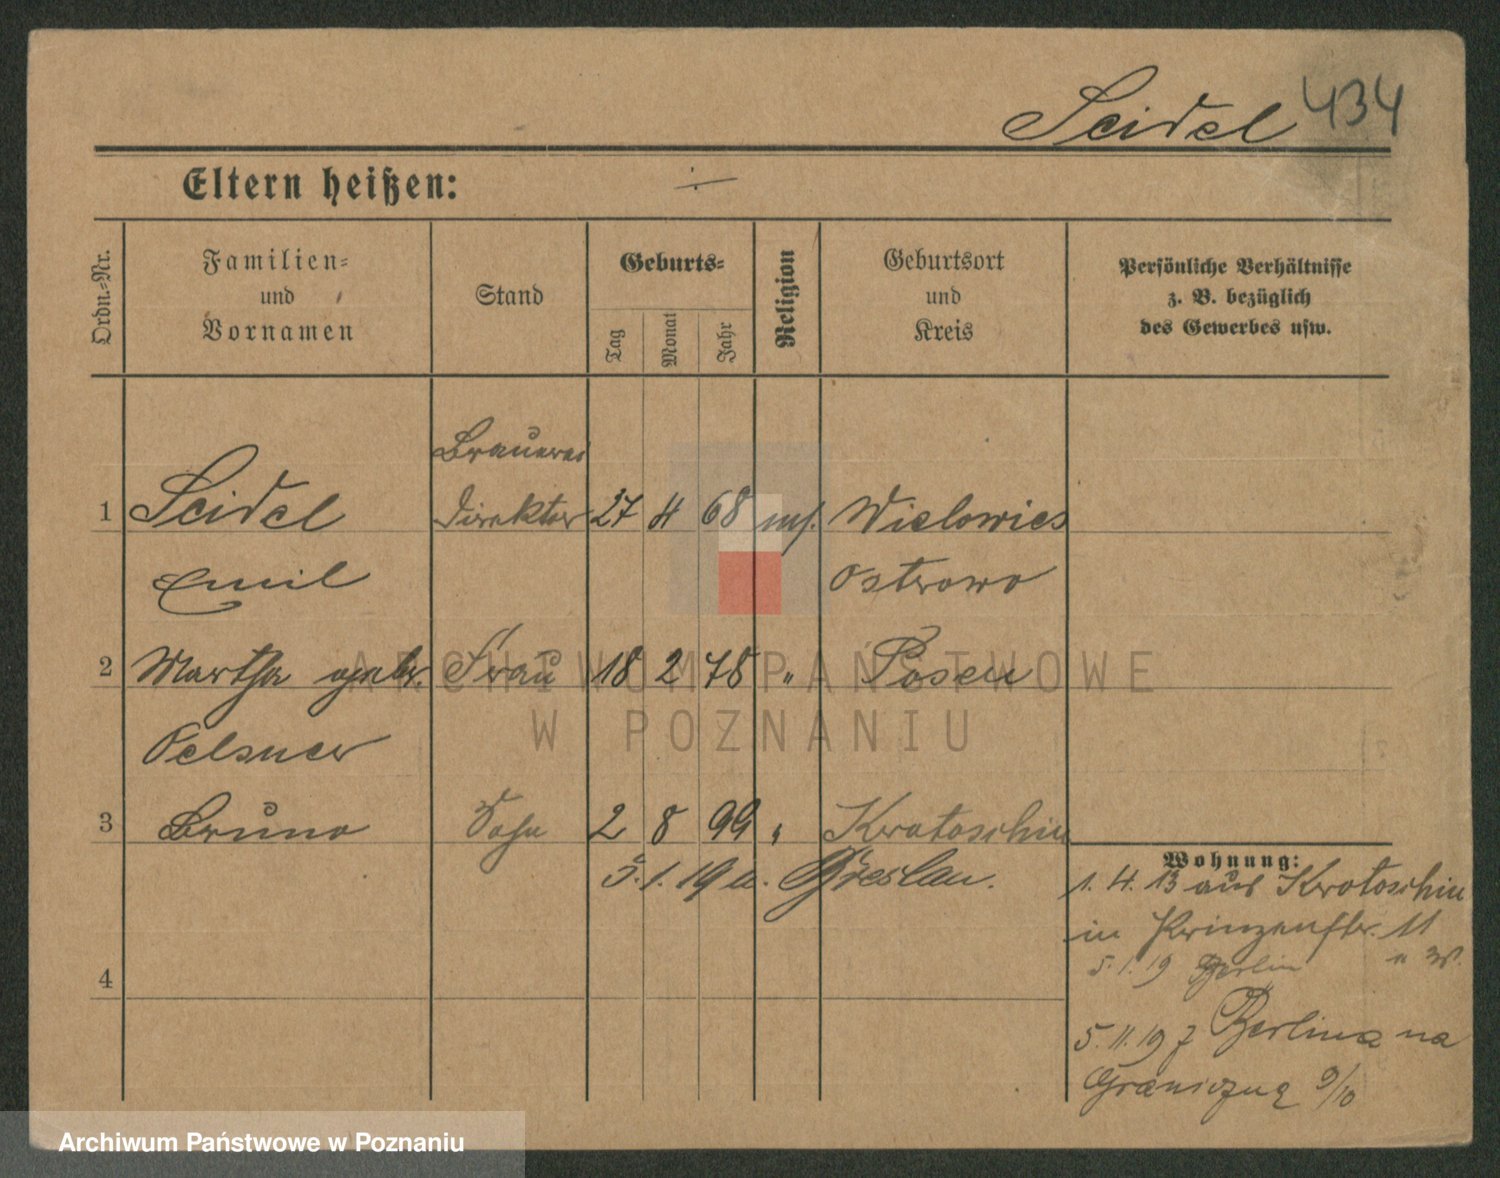 Seidel 434
Eltern heißen: ÷
Ordn.=Nr.
Familien=
und
Vornamen
Stand
Geburts=
Tag
Monat
Jahr
Religion
Geburtsort
und
Kreis
Persönliche Verhältnisse
z. B. bezüglich
des Gewerbes usw.
Brauerei
1 Seidel Direktor 27 4 68 mos. Wielowies
Emil Ostrowo
2 Martha geb. Frau 18 2 78 " Posen
Oelsner
3 Bruno Sohn 2 8 99 " Kratoschin
5.1.19 u. Breslau.
Wohnung:
1. 4. 13 aus Kratoschin
in Prinzenstr. 11
5.1.19 Berlin
4
5.11.19 z Berlina na
Graniczną 9/10
ARCHIWUM PAŃSTWOWE
W POZNANIU
Archiwum Państwowe w Poznaniu